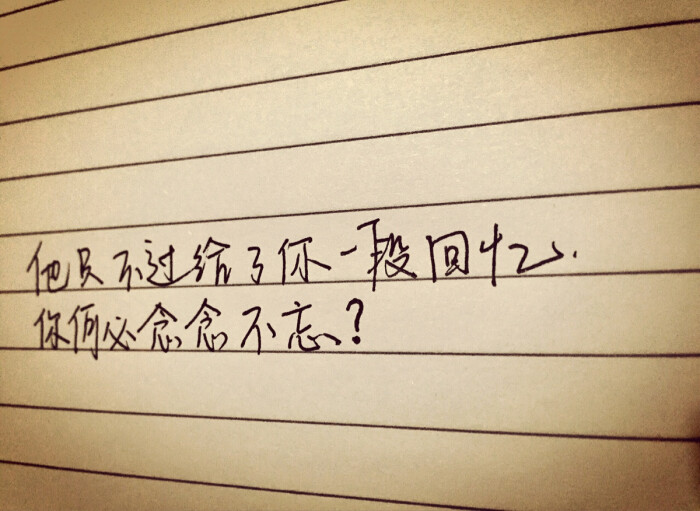 他只不过给了你一段回忆.
你何必念念不忘?